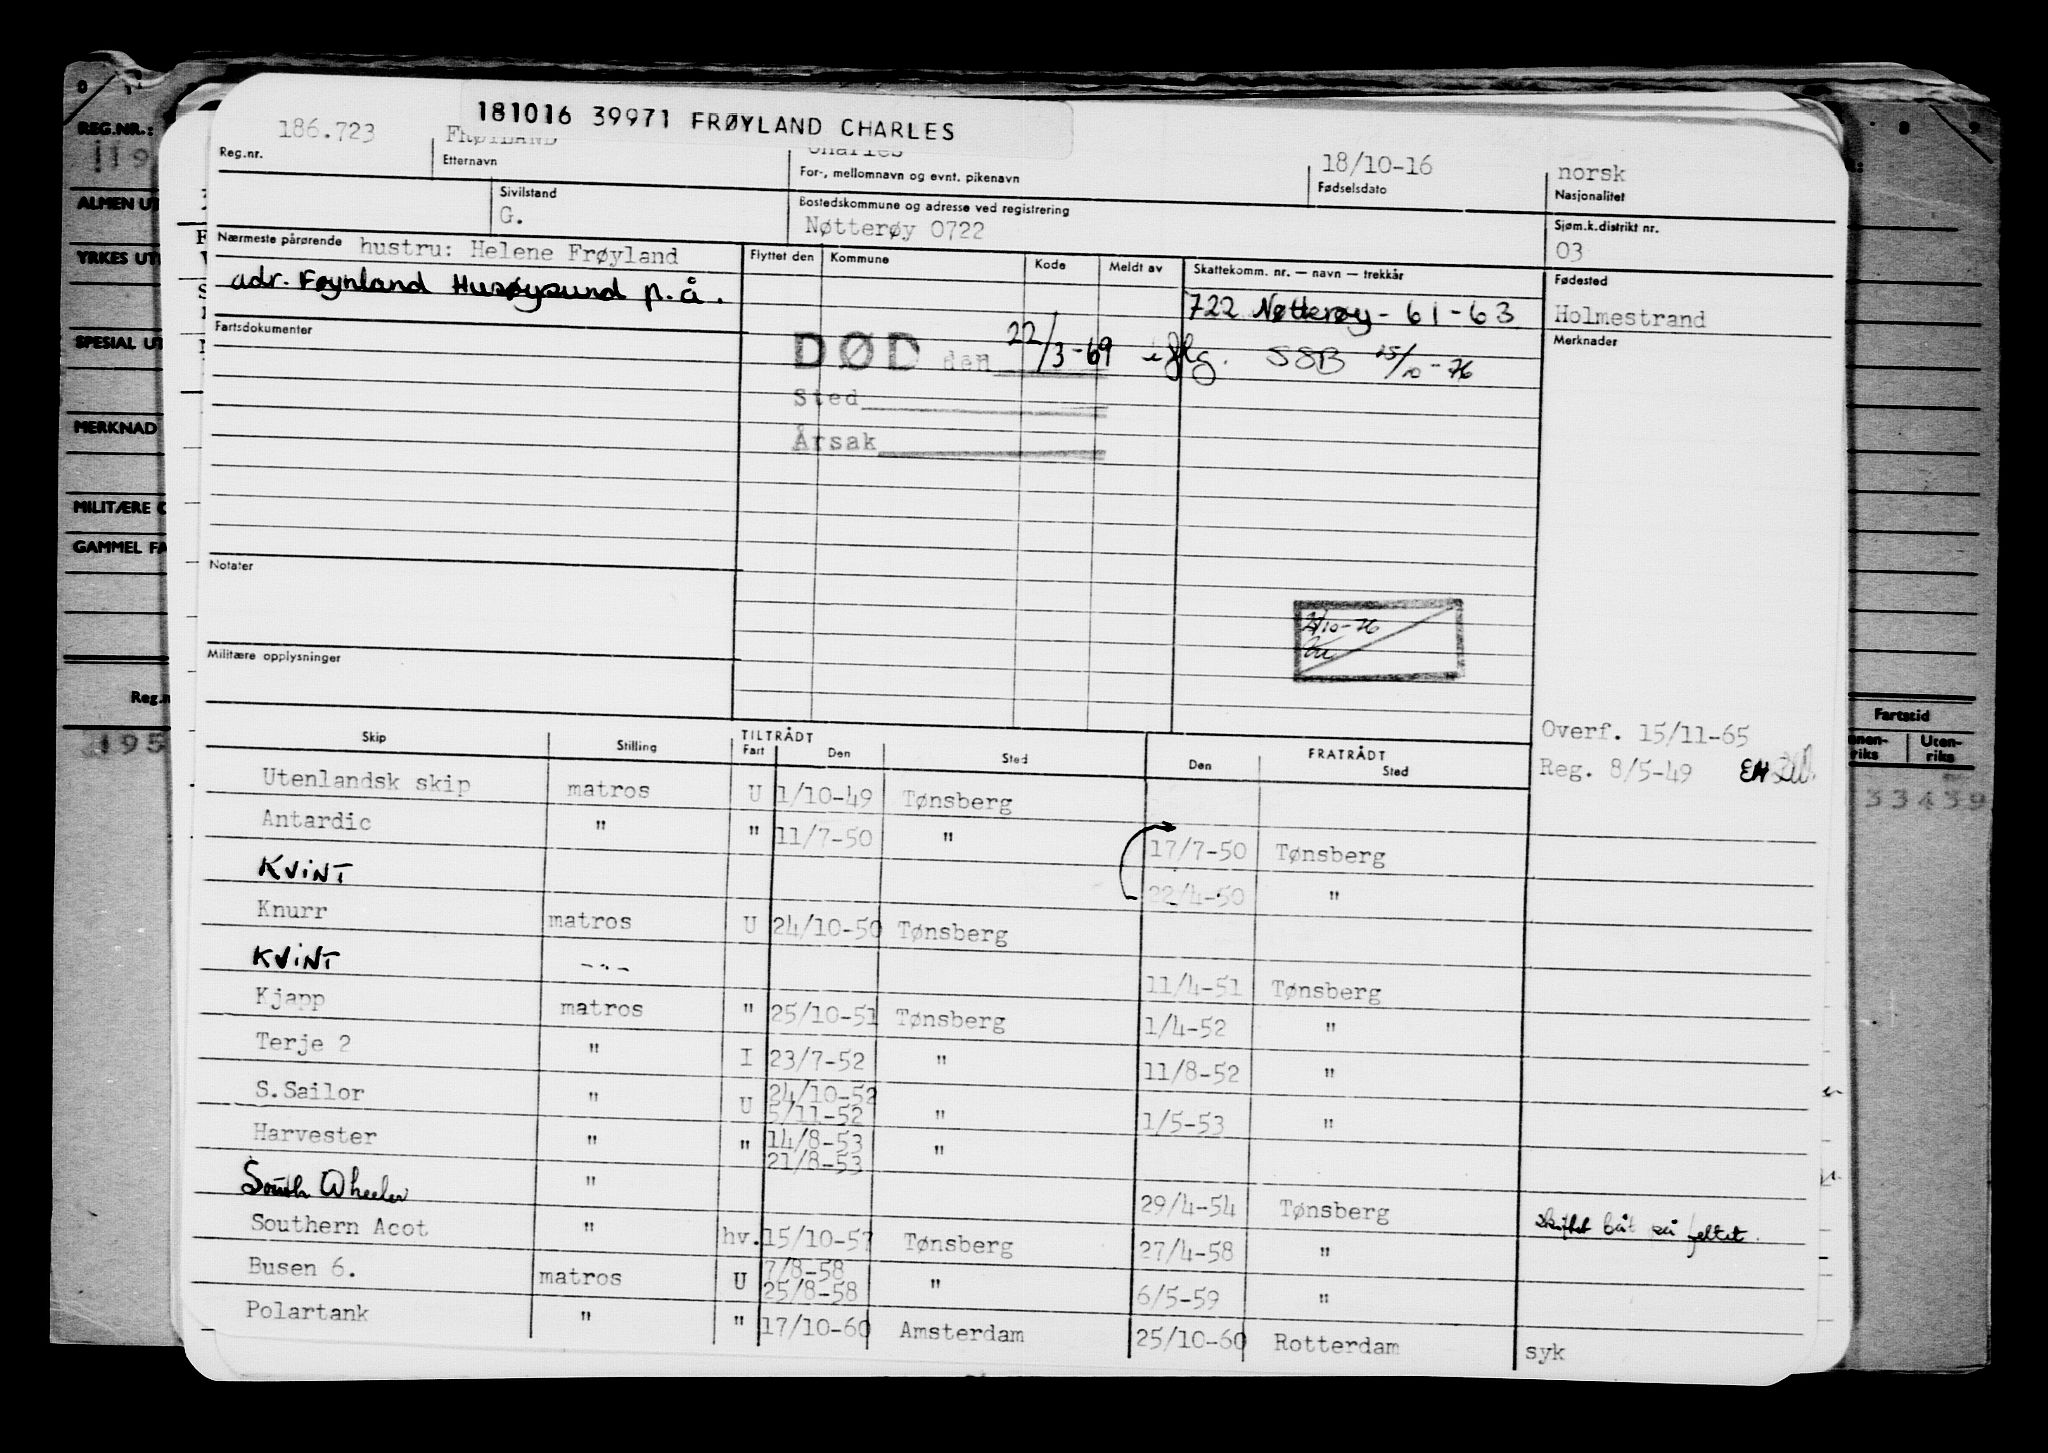 181016 39971 FRØYLAND CHARLES
186.723 FRØYLAND Charles 18/10-16 norsk
Reg.nr. Etternavn For-, mellomnavn og evnt. pikenavn Fødselsdato Nasjonalitet
Sivilstand Bostedskommune og adresse ved registrering Sjøm.k.distrikt nr.
G. Nøtterøy 0722 03
Nærmeste pårørende hustru: Helene Frøyland Flyttet den Kommune Kode Meldt av Skattekomm. nr. — navn — trekkår Fødested
adr. Føynland Husøysund p.å. 722 Nøtterøy - 61 - 63 Holmestrand
Fartsdokumenter Merknader
DØD den 22/3-69 iflg. SSB 25/10-76
Sted
Årsak
Notater
21/10-76
Militære opplysninger
Overf. 15/11-65
Reg. 8/5-49 EH
Skip Stilling TILTRÅDT Fart Den Sted FRATRÅDT Den Sted
Utenlandsk skip matros U 1/10-49 Tønsberg
Antardic " " 11/7-50 " 17/7-50 Tønsberg
KViNT 22/4-50 "
Knurr matros U 24/10-50 Tønsberg
KViNT -"- 11/4-51 Tønsberg
Kjapp matros " 25/10-51 Tønsberg 1/4-52 "
Terje 2 " I 23/7-52 " 11/8-52 "
S.Sailor " U 24/10-52 5/11-52 " 1/5-53 "
Harvester " " 14/8-53 21/8-53 "
South Wheeler " 29/4-54 Tønsberg Skiftet båt på feltet.
Southern Acot " hv. 15/10-57 Tønsberg 27/4-58 "
Busen 6. matros U 7/8-58 25/8-58 " 6/5-59 "
Polartank " " 17/10-60 Amsterdam 25/10-60 Rotterdam syk
REG.NR.:
ALMEN UT
YRKES UT
SPESIAL UT
MERKNAD
MILITÆRE O
GAMMEL FA
Reg.n
195
Fartstid
nnen-riks Uten-riks
33439